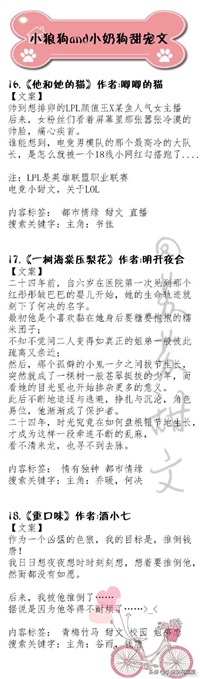 小狼狗and小奶狗甜宠文
16.《他和她的猫》作者:唧唧的猫
【文案】
帅到想排卵的LPL颜值王X某鱼人气女主播
后来，女粉丝们看着屏幕里那张嚣张冷漠的
帅脸，痛心疾首。
谁能想到，电竞男模队的那个最高冷的大队
长，是怎么就被一个18线小网红勾搭跑了....
注：LPL是英雄联盟职业联赛
电竞小甜文，关于LOL
内容标签： 都市情缘 甜文 直播
搜索关键字：主角：书佳
17.《一树海棠压梨花》作者:明开夜合
【文案】
二十四年前，自六岁在医院第一次见到那个
红彤彤皱巴巴的婴儿开始，她的生命轨迹就
刻下了何决的名字。
最初他是个喜欢黏在她身后要糖要抱抱的糯
米团子；
不知不觉间二人变得如真正的姐弟一般彼此
疏离又亲近；
然后，那个孤僻的小鬼一夕之间拔节生长，
突然就成了一棵树一般苍翠挺拔的少年，而
看她的目光里也开始掺杂更多的意义。
此后不断地追逐与逃避，挣扎与沉沦，角色
易位，他渐渐成了保护者。
二十四年，时光究竟在如何盘根错节地生长，
才成为这样一段牵连不断的乱麻，
看不清来龙，也寻不到去脉。
内容标签： 情有独钟 都市情缘
搜索关键字：主角：乔暖，何决
18.《重口味》作者:酒小七
【文案】
作为一个凶猛的色狼，我的目标是，推倒钱
唐！
我日日想夜夜想时时刻刻想，想着要推倒他，
然而都没有如愿。
后来，我被他推倒了……
据说是因为他等得不耐烦了……>_<
内容标签： 青梅竹马 甜文 校园
搜索关键字：主角：谷雨，钱唐